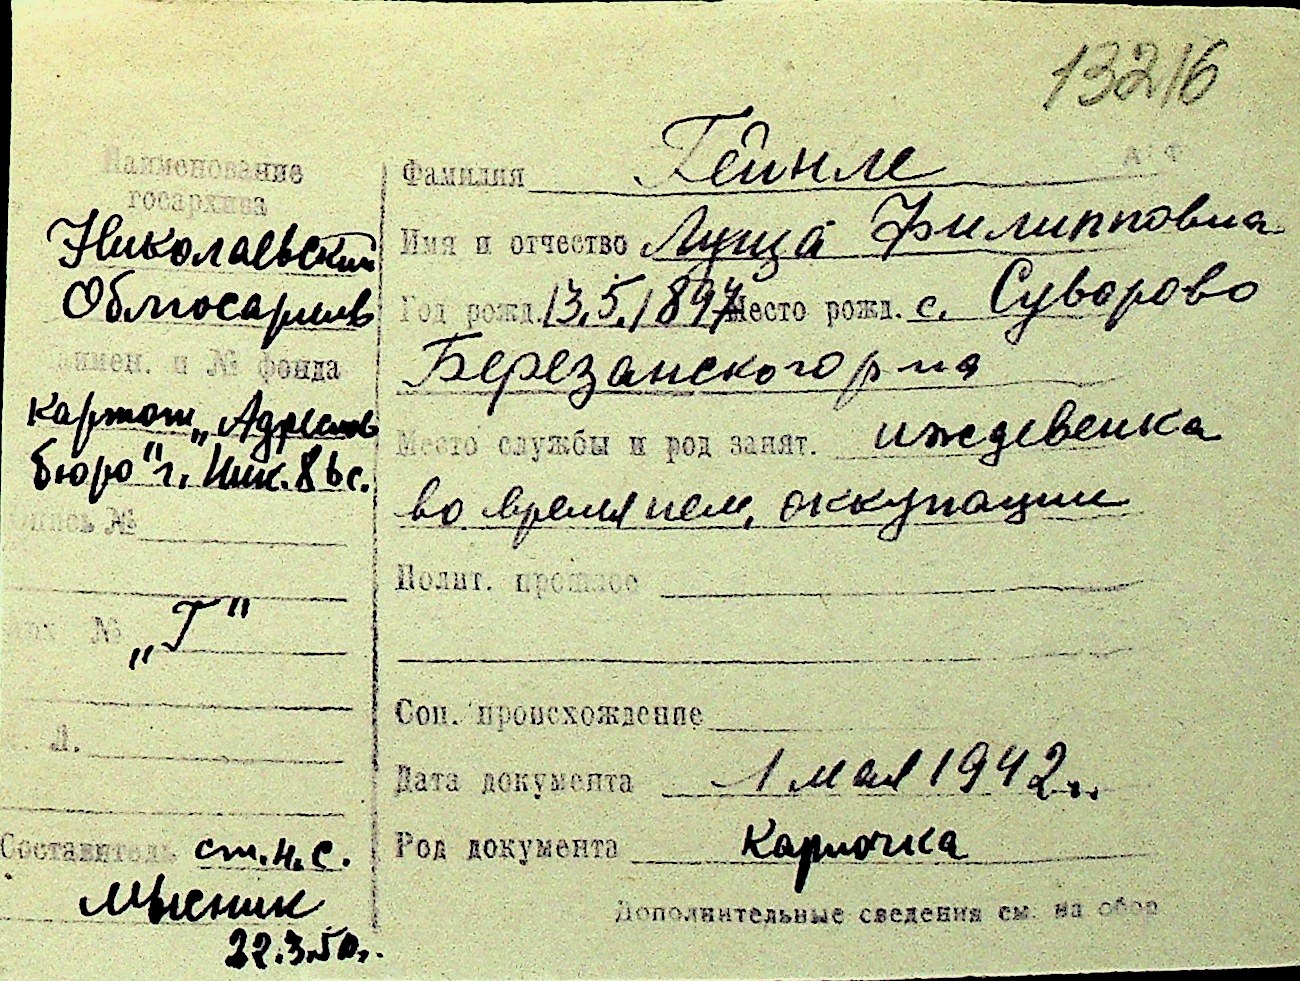 13216
Наименование
госархива
Николаевский
Облгосархив
Наимен. и № фонда
картот. „Адресное
бюро" г. Ник.
Опись №
Арх. № „Г"
Л.
Составитель ст.н.с.
Мысник
22.3.50г.
Фамилия Гейнле
Имя и отчество Луиза Филипповна
Год рожд. 13.5.1897 Место рожд. с. Суворово
Березанского р-на
Место службы и род занят. иждевенка
во время нем. оккупации
Полит. прошлое
Соц. происхождение
Дата документа 1 мая 1942 г.
Род документа Карточка
Дополнительные сведения см. на обор